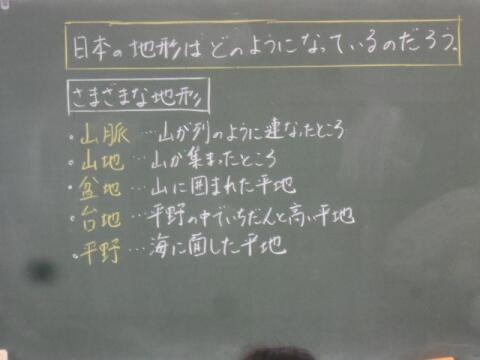 日本の地形はどのようになっているのだろう。
さまざまな地形
・山脈…山が列のように連なったところ
・山地…山が集まったところ
・盆地…山に囲まれた平地
・台地…平野の中でいちだんと高い平地
・平野…海に面した平地